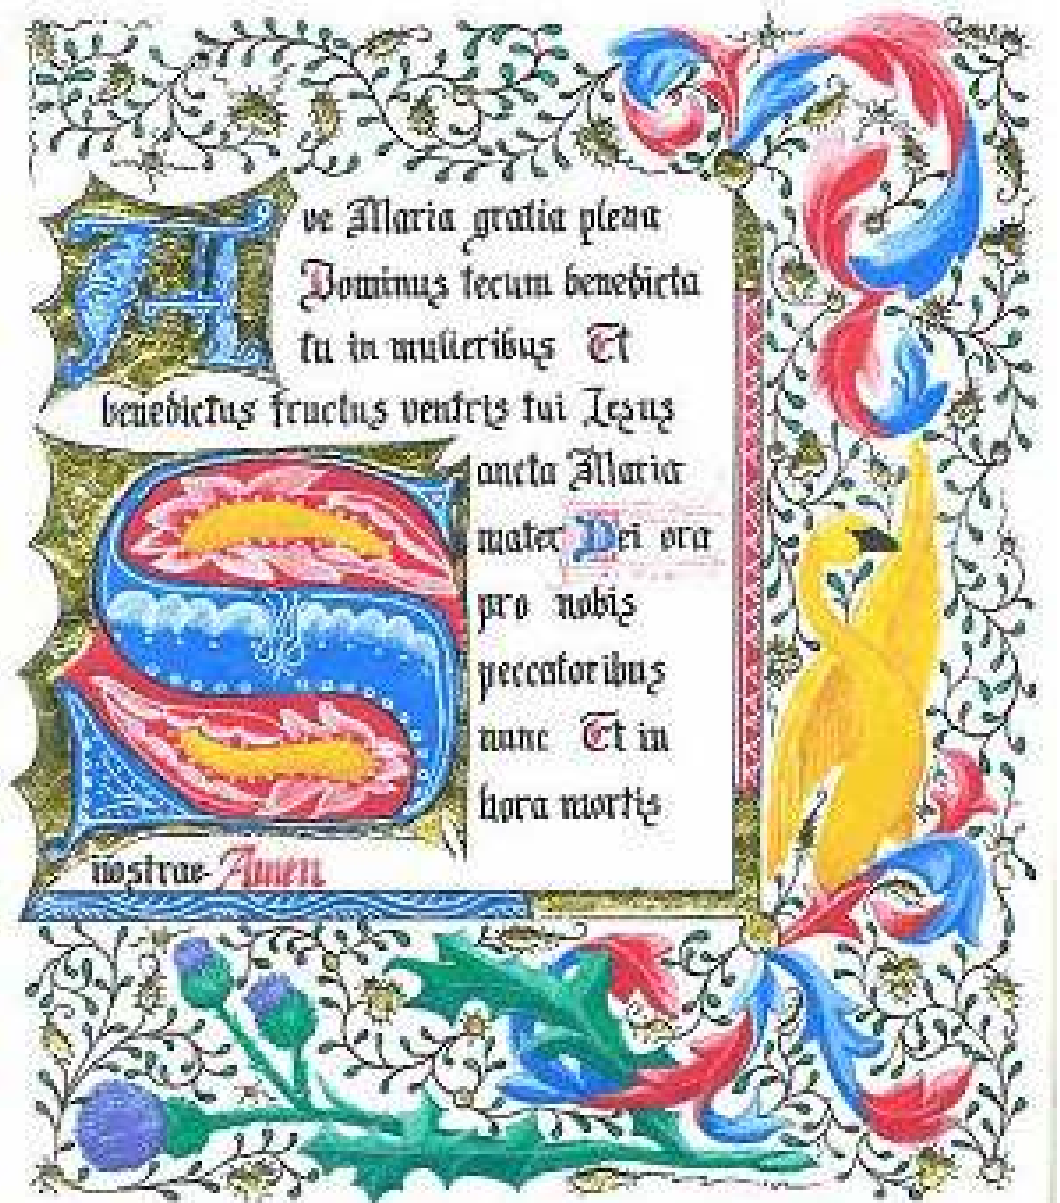 Ave Maria gratia plena
Dominus tecum benedicta
tu in mulieribus Et
benedictus fructus ventris tui Iesus
Sancta Maria
mater Dei ora
pro nobis
peccatoribus
nunc Et in
hora mortis
nostrae Amen